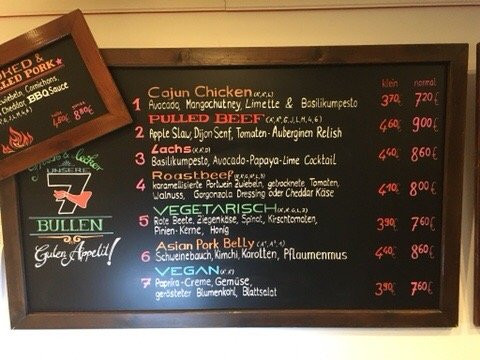 PULLED PORK
Zwiebeln, Cornichons,
Cheddar, BBQ Sauce
8,80€
UNSERE
7
BULLEN
Guten Appetit!
klein normal
1 Cajun Chicken
Avocado, Mangochutney, Limette & Basilikumpesto
3,70 7,20€
2 PULLED BEEF
Apple Slaw, Dijon Senf, Tomaten-Auberginen Relish
4,60 9,00€
3 Lachs
Basilikumpesto, Avocado-Papaya-Lime Cocktail
4,40 8,60€
4 Roastbeef
karamellisierte Portwein Zwiebeln, getrocknete Tomaten,
Walnuss, Gorgonzola Dressing oder Cheddar Käse
4,10 8,00€
5 VEGETARISCH
Rote Beete, Ziegenkäse, Spinat, Kirschtomaten,
Pinien-Kerne, Honig
3,90 7,60€
6 Asian Pork Belly
Schweinebauch, Kimchi, Karotten, Pflaumenmus
4,40 8,60€
7 VEGAN
Paprika-Creme, Gemüse,
gerösteter Blumenkohl, Blattsalat
3,90 7,60€